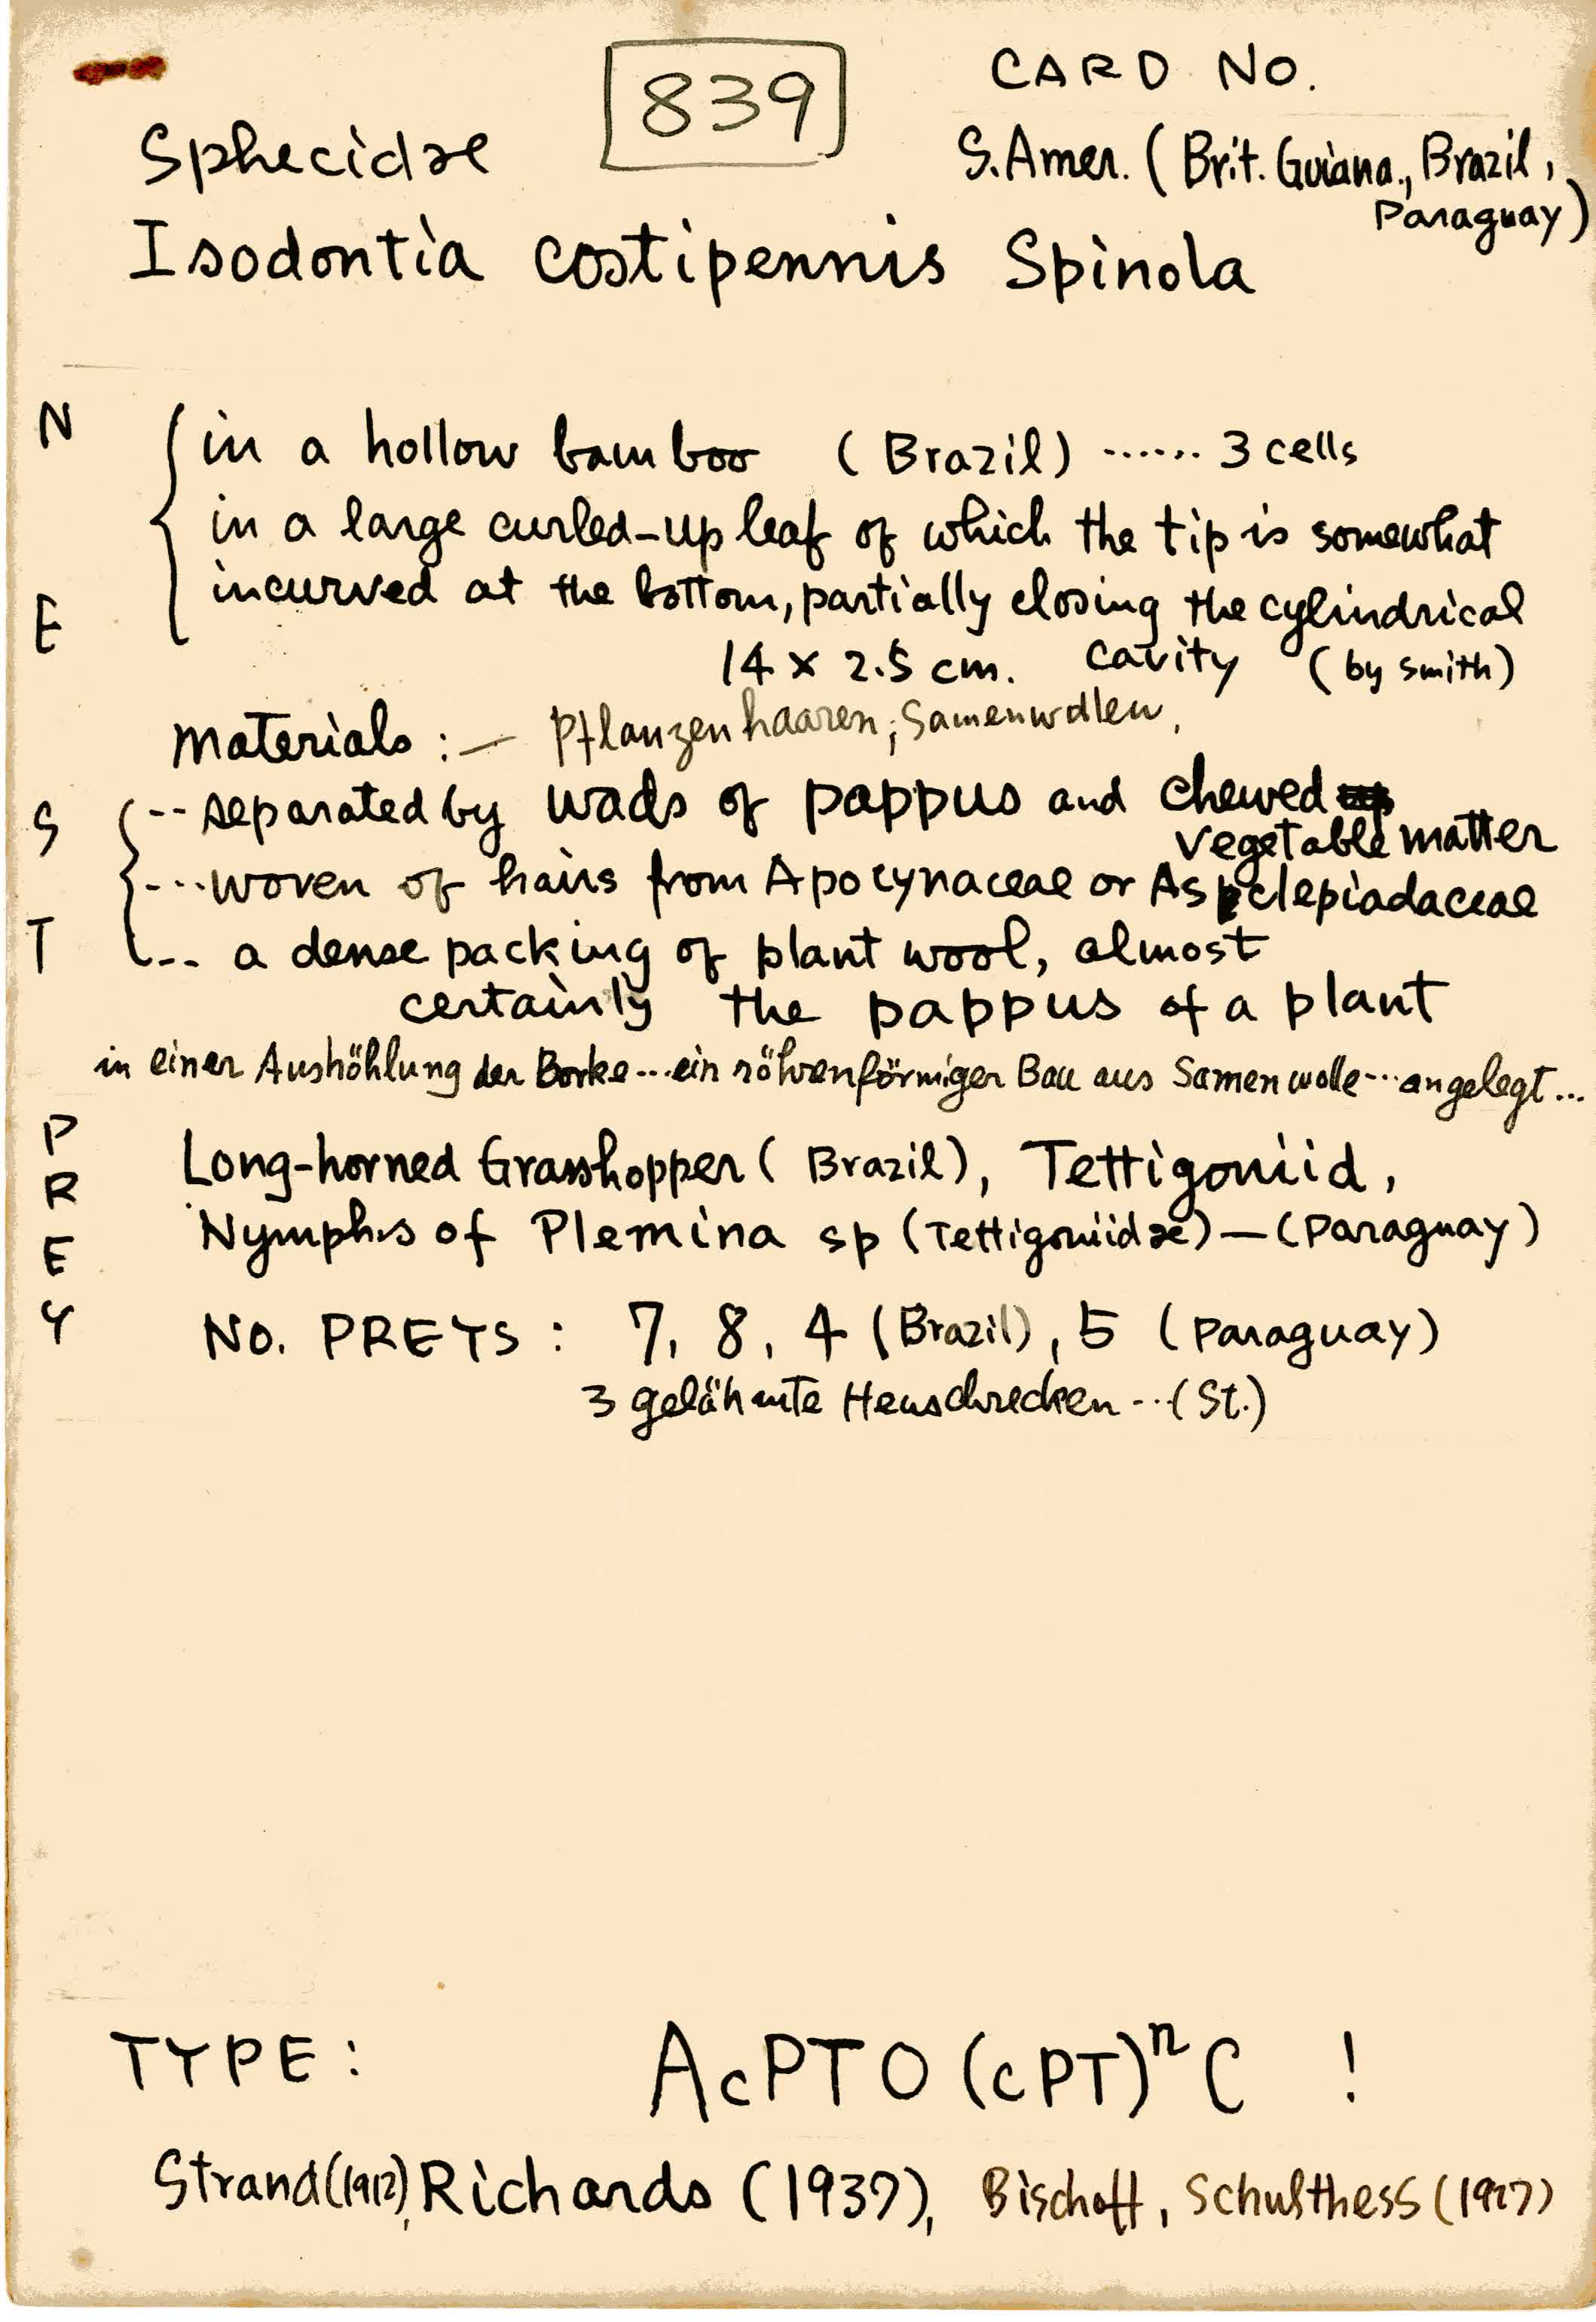 839
CARD NO.
Sphecidae
S. Amer. (Brit. Guiana., Brazil,
Paraguay)
Isodontia costipennis Spinola
NEST
in a hollow bamboo (Brazil) ...... 3 cells
in a large curled-up leaf of which the tip is somewhat
incurved at the bottom, partially closing the cylindrical
14 x 2.5 cm. cavity (by Smith)
Materials :— Pflanzenhaaren, Samenwollen,
-- separated by wads of pappus and chewed
vegetable matter
... woven of hairs from Apocynaceae or Asclepiadaceae
... a dense packing of plant wool, almost
certainly the pappus of a plant
in einer Aushöhlung der Borke ... ein röhrenförmiger Bau aus Samenwolle ... angelegt ...
PREY
Long-horned Grasshopper (Brazil), Tettigoniid,
Nymphs of Plemina sp (Tettigoniidae) — (Paraguay)
NO. PREYS : 7, 8, 4 (Brazil), 5 (Paraguay)
3 gelähmte Heuschrecken ... (St.)
TYPE : AcPTO (cPT)ⁿ C !
Strand (1912), Richards (1937), Bischoff, Schulthess (1927)